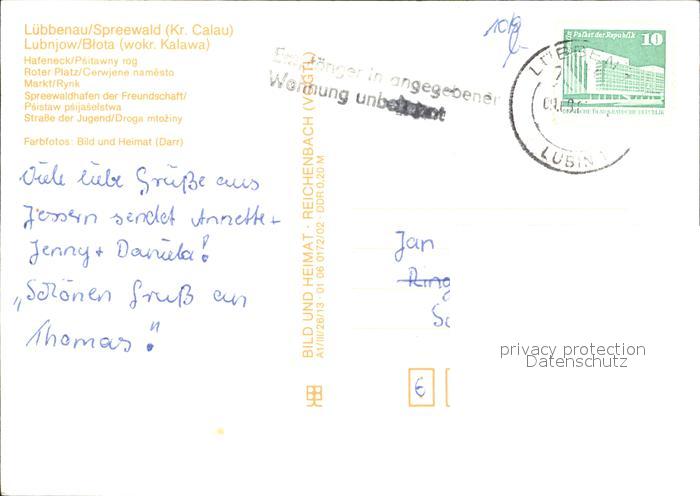 Lübbenau/Spreewald (Kr. Calau)
Lubnjow/Błota (wokr. Kalawa)
Hafeneck/Pśitawny rog
Roter Platz/Cerwjene naměsto
Markt/Rynk
Spreewaldhafen der Freundschaft/
Pśistaw pśijaśelstwa
Straße der Jugend/Droga młoźiny
Farbfotos: Bild und Heimat (Darr)
Viele liebe Grüße aus
Jessern sendet Annette +
Jenny + Daniela!
„Schönen Gruß an
Thomas"!
BILD UND HEIMAT · REICHENBACH (VOGTL)
A1/III/26/13 · 01 06 0172/02 · DDR 0,20 M
Empfänger in angegebener
Wohnung unbekannt
Palast der Republik
10
LÜBBEN
LUBIN
Jan
Ring
6
privacy protection
Datenschutz